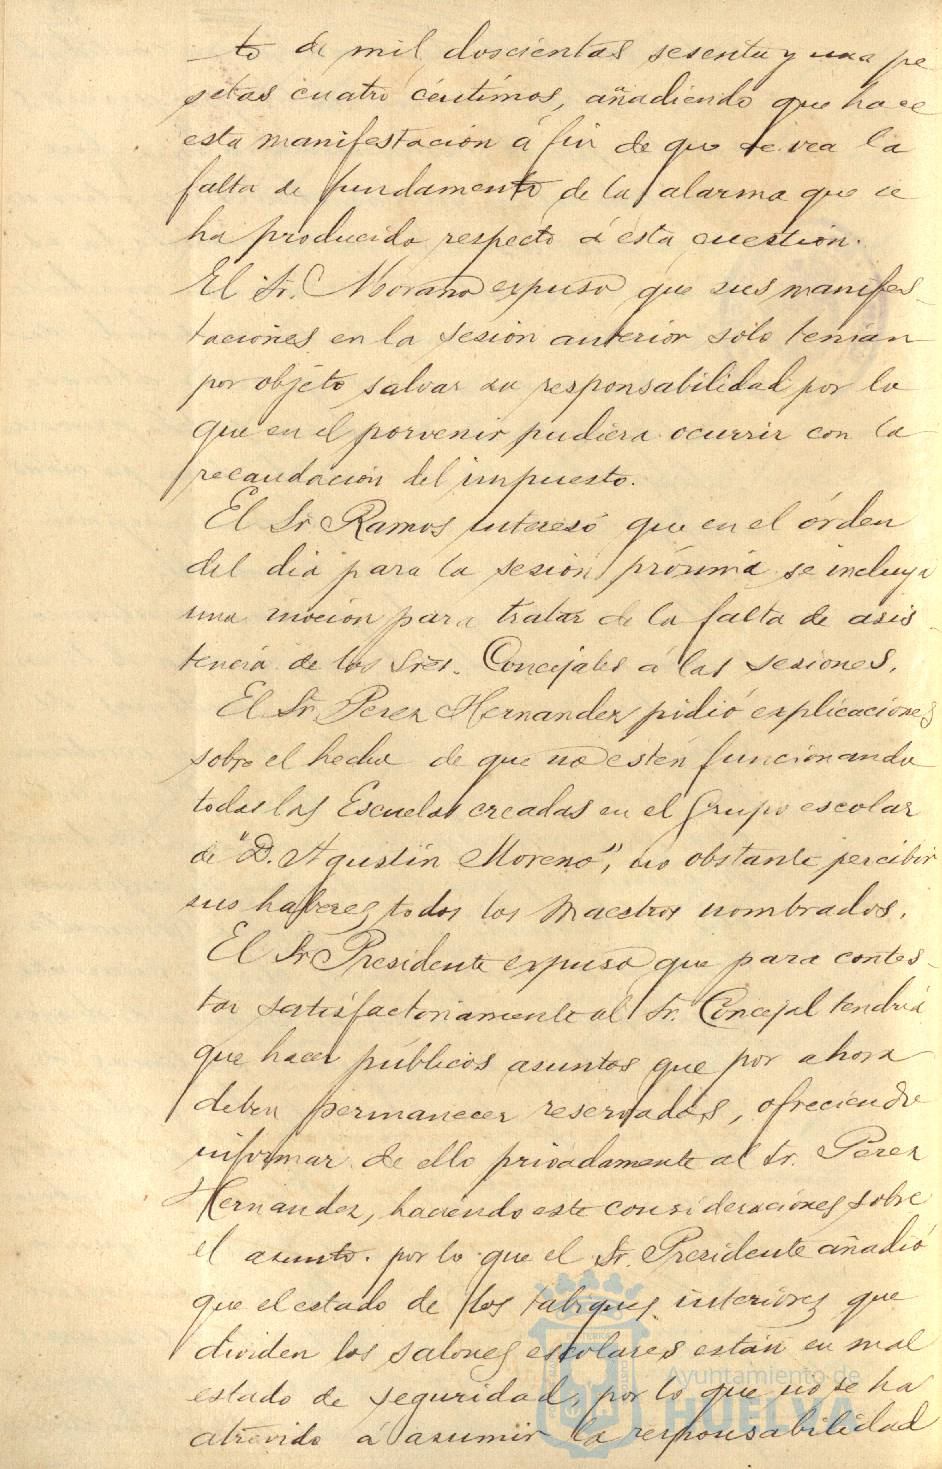 to de mil doscientas sesenta y una pe
setas cuatro céntimos, añadiendo que hace
esta manifestación á fin de que se vea la
falta de fundamento de la alarma que se
ha producido respecto á esta cuestión.
El Sr. Morano expuso que sus manifes-
taciones en la sesión anterior sólo tenian
por objeto salvar su responsabilidad por lo
que en el porvenir pudiera ocurrir con la
recaudación del impuesto.
El Sr Ramos interesó que en el órden
del dia para la sesión próxima se incluya
una moción para tratar de la falta de asis-
tencia de los Sres. Concejales á las sesiones.
El Sr. Perez Hernandez pidió explicaciones
sobre el hecho de que no estén funcionando
todas las Escuelas creadas en el Grupo escolar
de "D. Agustín Moreno", no obstante percibir
sus haberes todos los Maestros nombrados.
El Sr Presidente expuso que para contes-
tar satisfactoriamente al Sr. Concejal tendría
que hacer públicos asuntos que por ahora
deben permanecer reservados, ofreciendo
informar de ello privadamente al Sr. Pérez
Hernandez, haciendo este consideraciones sobre
el asunto. por lo que el Sr. Presidente añadió
que el estado de los tabiques interiores que
dividen los salones escolares están en mal
estado de seguridad, por lo que no se ha
atrevido á asumir la responsabilidad
Ayuntamiento de
HUELVA